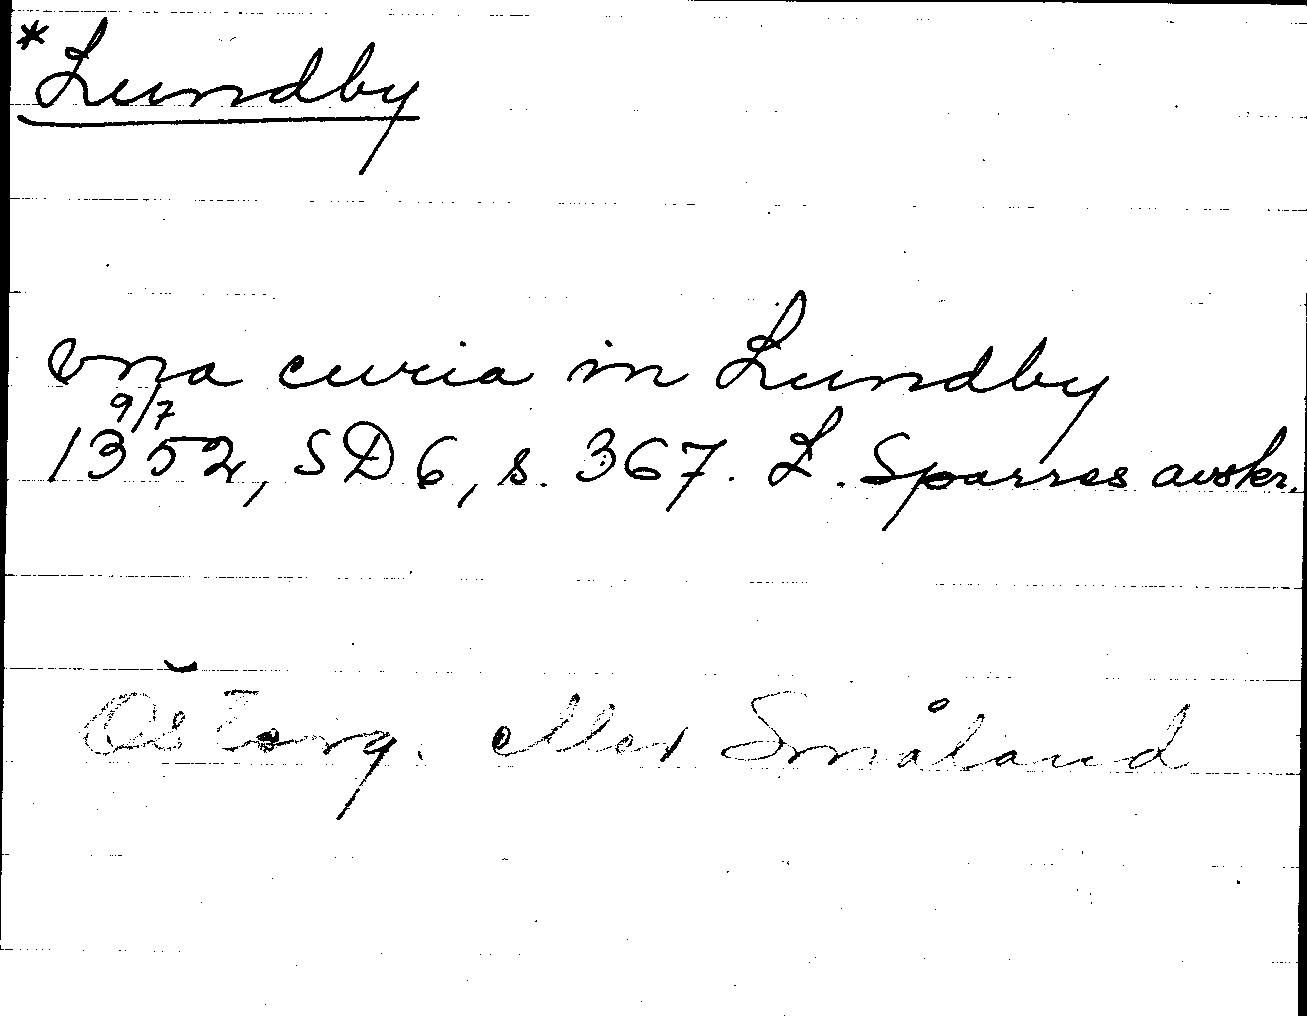 *Lundby
vna curia in Lundby
9/7
1352, SD 6, s. 367. L. Sparres avskr.
Österg. eller Småland